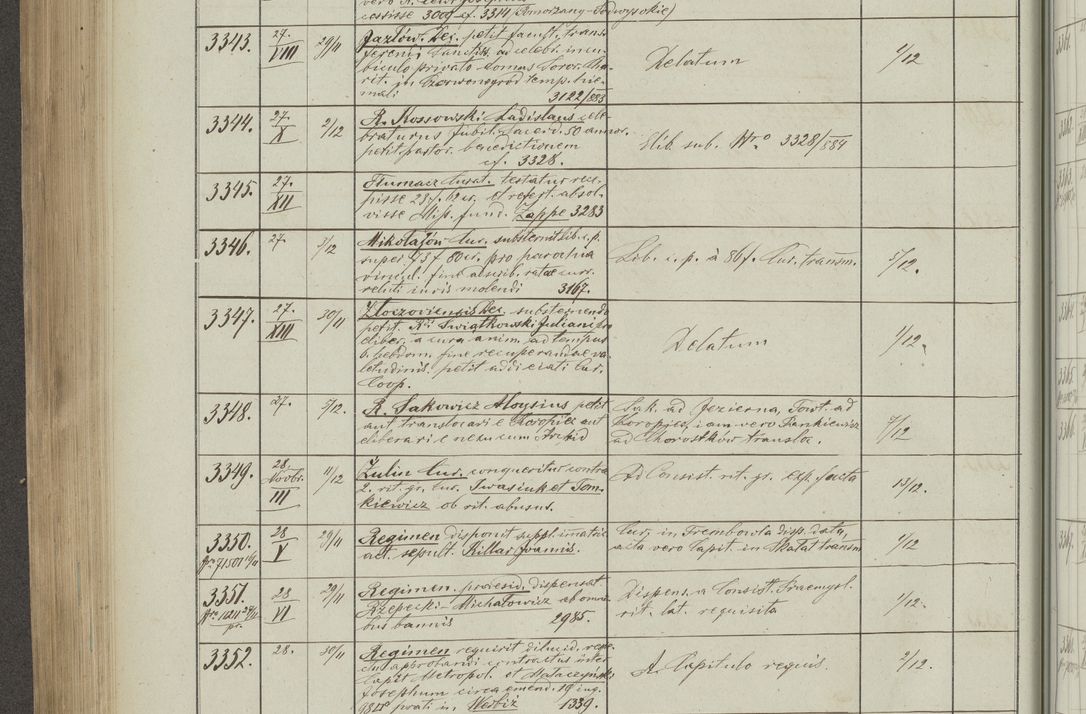 cessisse 300f cf. 3314 (Pomorzany-Podwysokie)
3343. 27. VIII 29/11 Jazłów. Dec. petit facult. trans-
ferendi Sanctiss. ad celebr. in cu-
biculo privato domus Soror. Cha-
rit. in Czerwonogród temp. hie-
mali 3122/883
Delatum 1/12
3344. 27. X 2/12 R. Kossowski Ladislaus cele-
braturus jubil. sacerd. 50 annor.
petit pastor. benedictionem
cf. 3328.
Elib sub. Nro 3328/884
3345. 27. XII Tłumacz curat. testatur rece-
pisse 28f. 62 cr. et refert absol-
visse Miss. fund. Zappe 3283
3346. 27. 3/12 Mikołajów Cur. substernit lib. c. p.
super 43f 80 cr. pro parochia
vincul. fine adscrib. ratae curr.
reluti iuris molendi 3167.
Lib. c. p. à 86f. Cur. transm. 5/12.
3347. 27. XIII 30/11 Złoczoviensis Dec. substernendo
petit. Rdi Swiątkowski Juliani pro
deliber. a cura anim. ad tempus
6. hebdom. fine recuperandae va-
letudinis. petit addi ei ati Cur.
Coop.
Delatum 1/12.
3348. 27. 5/12. R. Sakowicz Aloysius petit
aut translocari e Koropiec aut
liberari e nexu cum Archid
Sak. ad Jezierna, Towt. ad
Koropiec, iam vero Pankiewicz
ad Chorostków transloc. 7/12
3349. 28. Novbr. III 11/12 Żulin Cur. conqueritur contra
2. rit. gr. Cur. Iwasiuk et Tom-
kiewicz ob rit. abusus.
Ad Consist. rit. gr. exp. facta 13/12.
3350. 28 V 29/11 Regimen disponit suppl. immatric
act. sepult. Killar Joannis.
Cur. in Trembowla disp. data,
acta vero Capit. in Skałat transm 1/12
3351. 28 VI 29/11 Regimen praesid. dispensat
Rzepecki-Michałowicz ab omni-
bus bannis 2985.
Dispens. a Consist. Praemysl.
rit. lat. requisita 1/12.
3352. 28. 30/11 Regimen requirit dilucid. respe-
ctu approbandi contractus inter
Capit Metropol. et Mataczyński
Josephum circa emend. 19 iug.
984° prati in Herbiż 1339.
A. Capitulo requis. 2/12.